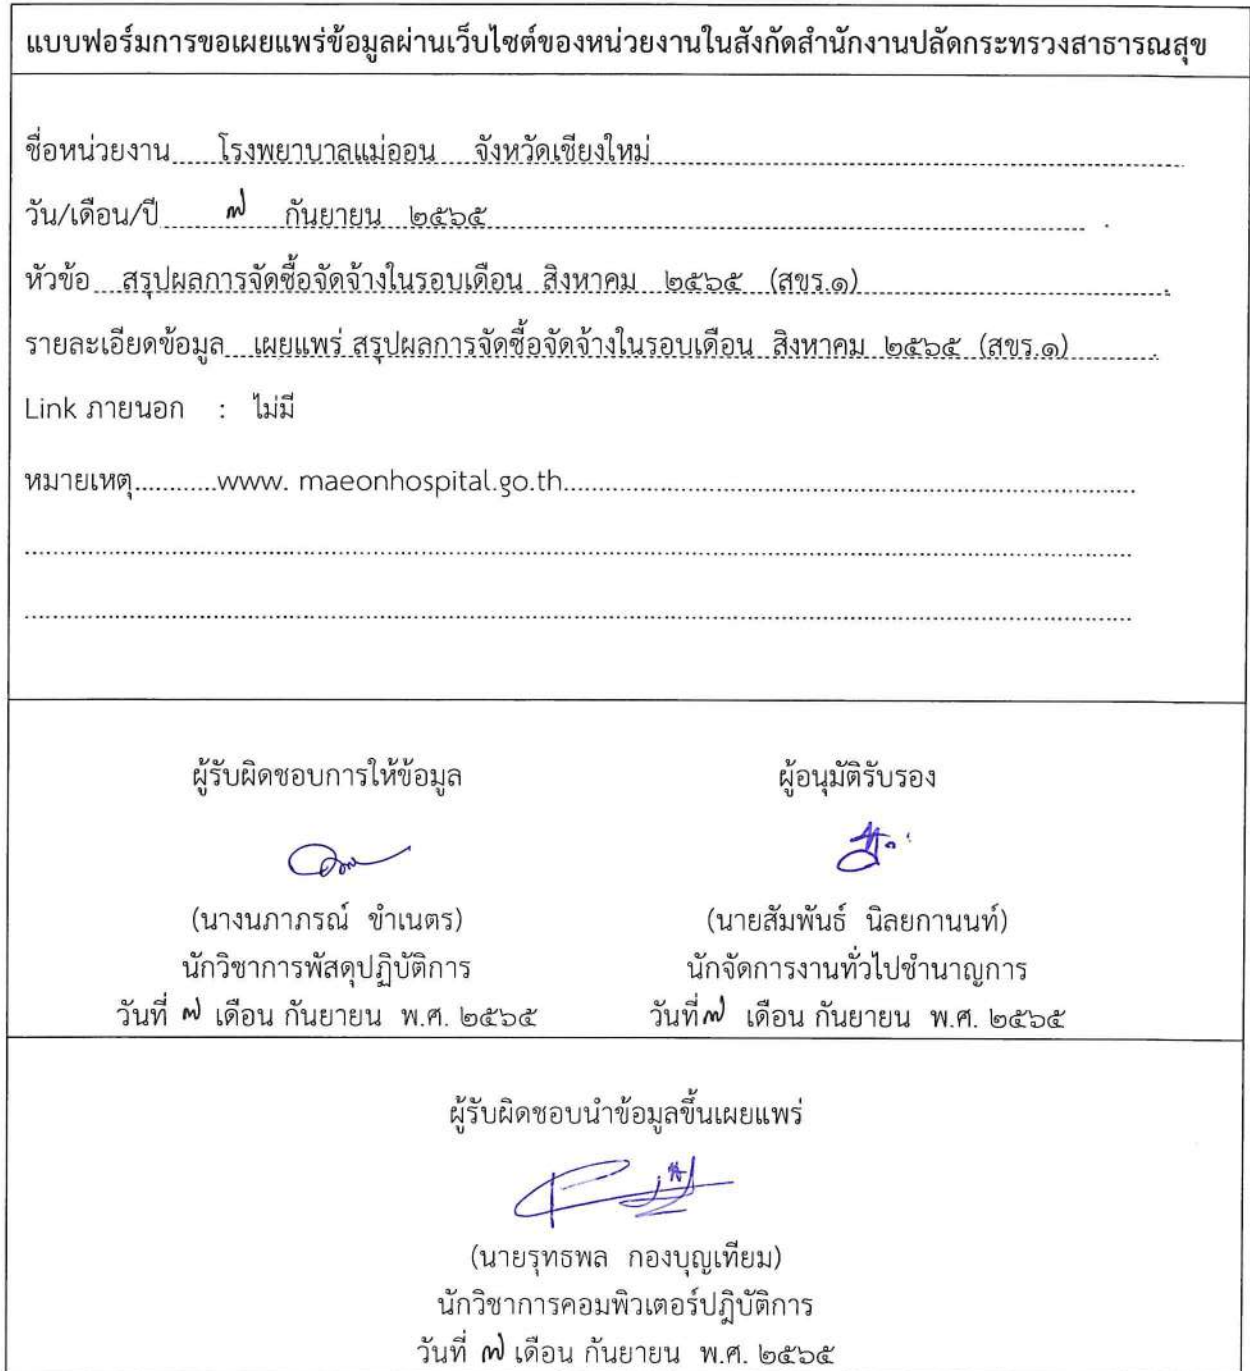 แบบฟอร์มการขอเผยแพร่ข้อมูลผ่านเว็บไซต์ของหน่วยงานในสังกัดสำนักงานปลัดกระทรวงสาธารณสุข
ชื่อหน่วยงาน โรงพยาบาลแม่ออน จังหวัดเชียงใหม่
วัน/เดือน/ปี ๗ กันยายน ๒๕๖๕
หัวข้อ สรุปผลการจัดซื้อจัดจ้างในรอบเดือน สิงหาคม ๒๕๖๕ (สขร.๑)
รายละเอียดข้อมูล เผยแพร่ สรุปผลการจัดซื้อจัดจ้างในรอบเดือน สิงหาคม ๒๕๖๕ (สขร.๑)
Link ภายนอก : ไม่มี
หมายเหตุ............www. maeonhospital.go.th
ผู้รับผิดชอบการให้ข้อมูล ผู้อนุมัติรับรอง
(นางนภาภรณ์ ขำเนตร) (นายสัมพันธ์ นิลยกานนท์)
นักวิชาการพัสดุปฏิบัติการ นักจัดการงานทั่วไปชำนาญการ
วันที่ ๗ เดือน กันยายน พ.ศ. ๒๕๖๕ วันที่ ๗ เดือน กันยายน พ.ศ. ๒๕๖๕
ผู้รับผิดชอบนำข้อมูลขึ้นเผยแพร่
(นายรุทธพล กองบุญเทียม)
นักวิชาการคอมพิวเตอร์ปฏิบัติการ
วันที่ ๗ เดือน กันยายน พ.ศ. ๒๕๖๕